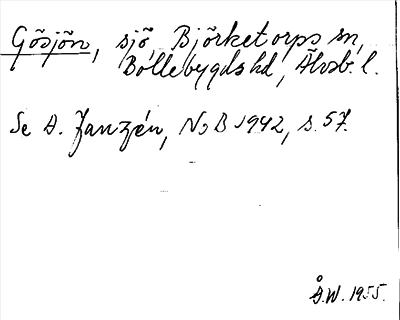 Gösjön, sjö, Björketorps sn,
Bollebygds hd, Älvsb. l.
Se A. Janzén, NoB 1942, s. 57.
Å.W. 1955.